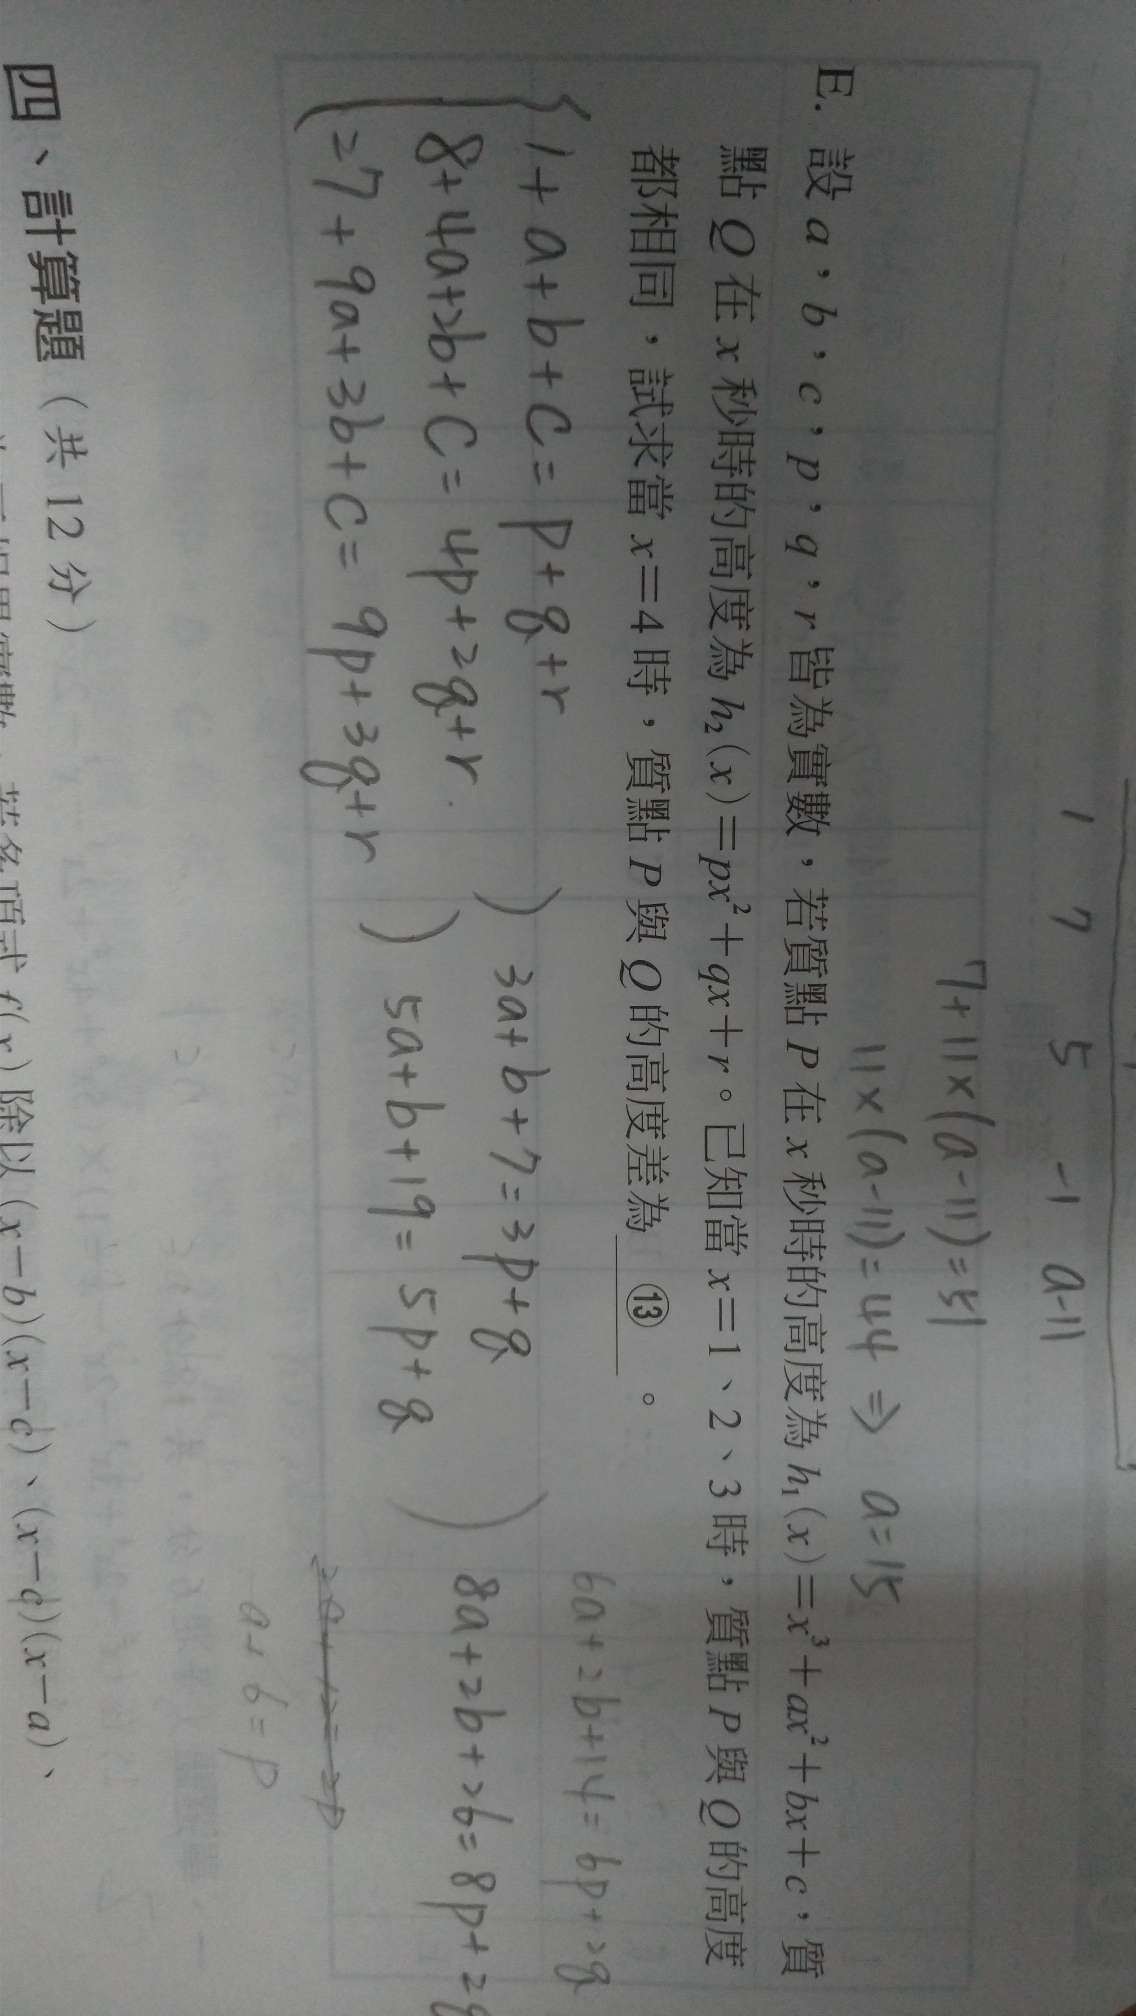 1 7 5 -1 a-11
7+11×(a-11)=51
11×(a-11)=44 ⇒ a=15
E. 設 a，b，c，p，q，r 皆為實數，若質點 P 在 x 秒時的高度為 h₁(x)＝x³＋ax²＋bx＋c，質
點 Q 在 x 秒時的高度為 h₂(x)＝px²＋qx＋r。已知當 x＝1、2、3 時，質點 P 與 Q 的高度
都相同，試求當 x＝4 時，質點 P 與 Q 的高度差為 ⑬ 。
1+a+b+c=p+q+r
8+4a+2b+c=4p+2q+r
27+9a+3b+c=9p+3q+r
3a+b+7=3p+q
5a+b+19=5p+q
6a+2b+14=6p+2q
8a+2b+26=8p+2q
a+6=p
四、計算題（共 12 分）
若多項式 f(x) 除以 (x－b)(x－c)、(x－c)(x－a)、